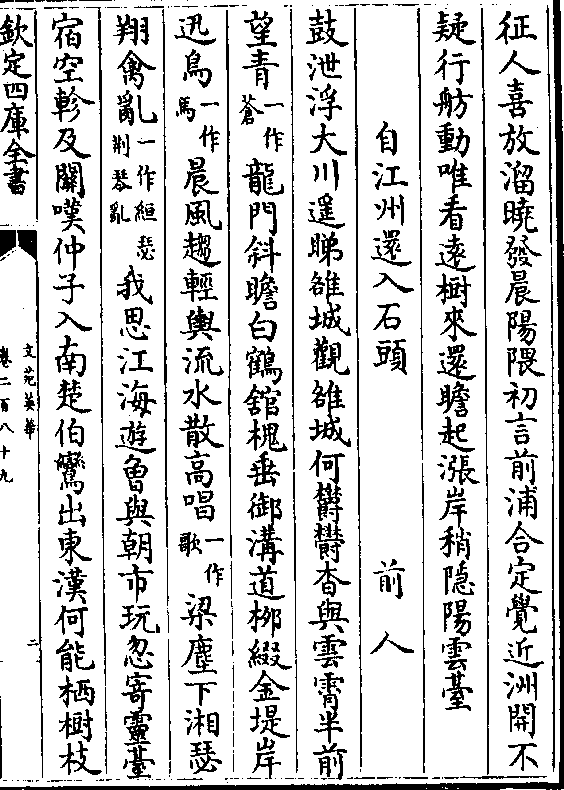 征人喜放溜曉發晨陽隈初言前浦合定覺近洲開不
疑行舫動唯看遠樹來還瞻起漲岸稍隱陽雲臺
自江州還入石頭　前人
鼓泄浮大川遥睇雒城觀雒城何鬱鬱杳與雲霄半前
望青一作蒼龍門斜瞻白鶴舘槐垂御溝道栁綴金堤岸
迅鳥一作馬晨風趨輕輿流水散高唱一作歌梁塵下湘瑟
翔禽亂一作絙瑟荆琴亂我思江海遊魯與朝市玩忽寄靈臺
宿空軫及關嘆仲子入南楚伯鸞出東漢何能栖樹枝
欽定四庫全書
文苑英華
卷二百八十九
二